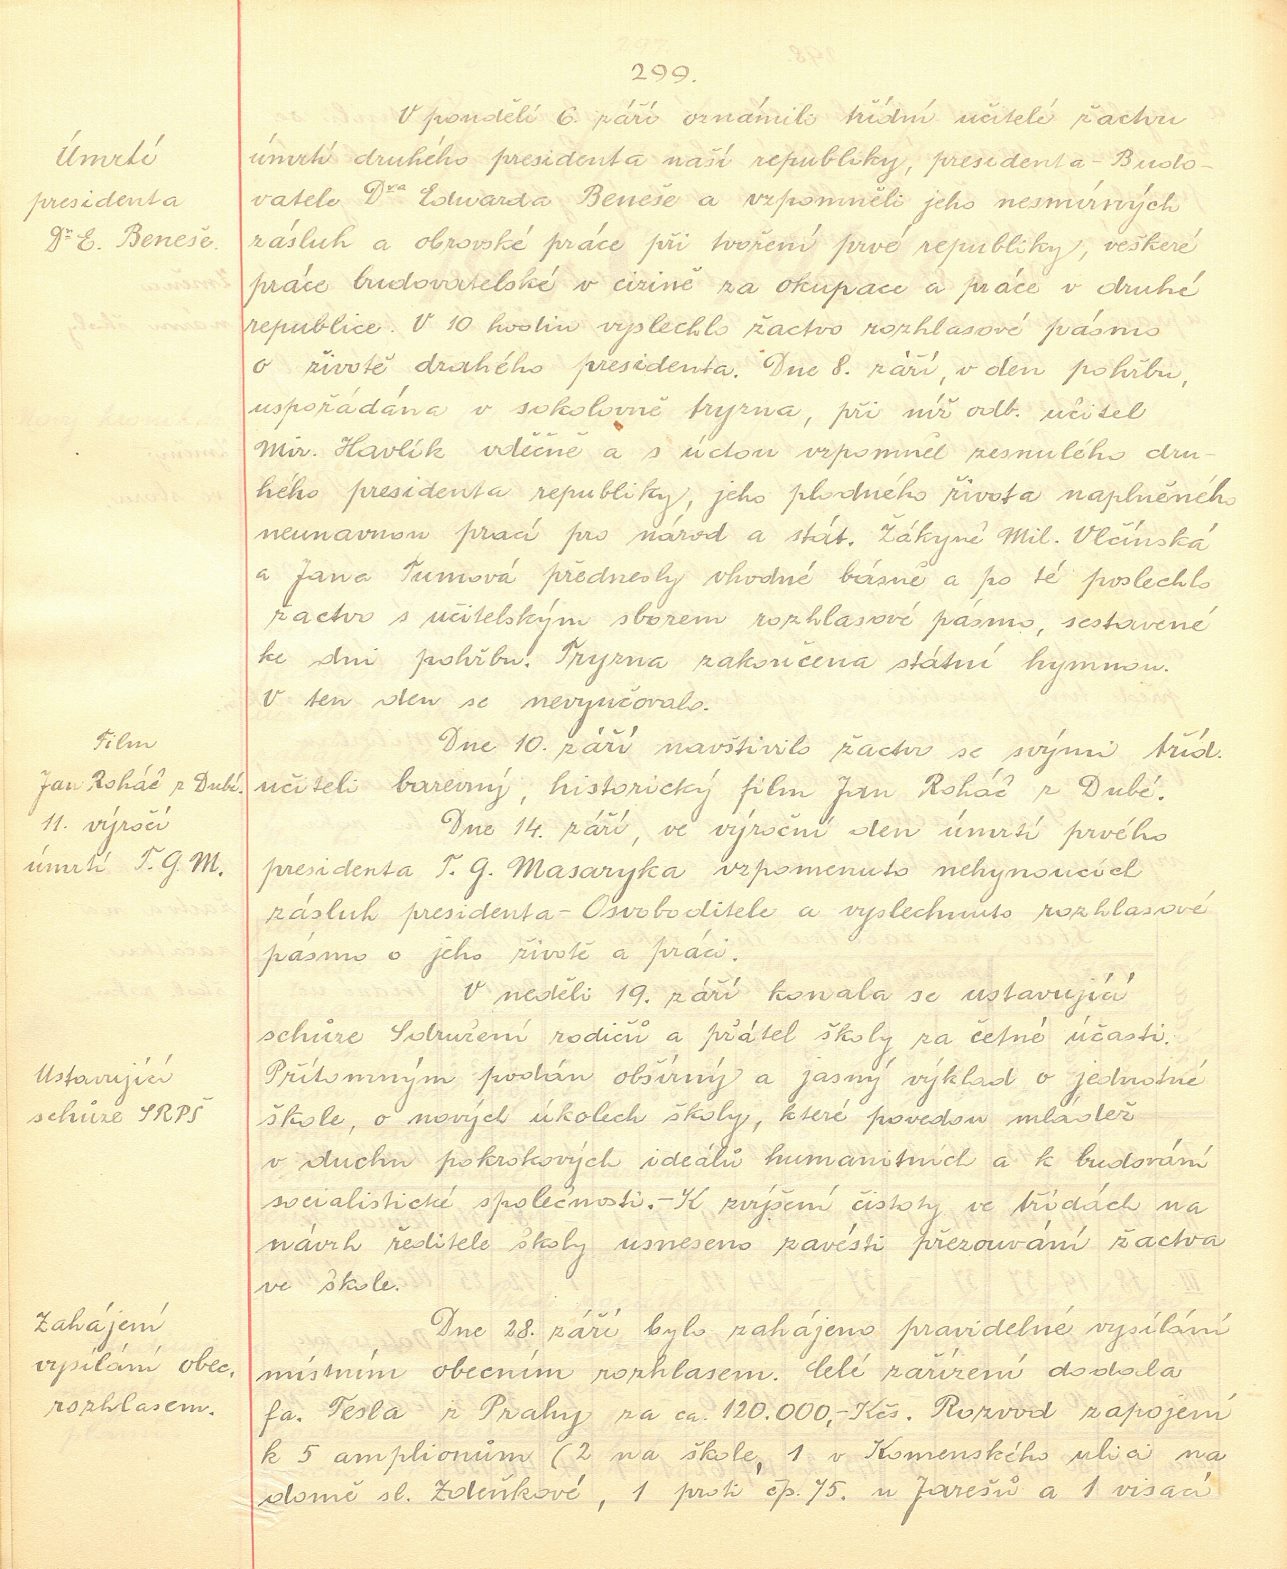 299.
V pondělí 6. září oznámili třídní učitelé žactvu
Úmrtí
presidenta
Dr E. Beneše.
úmrtí druhého presidenta naší republiky, presidenta - Budo-
vatele Dra Edwarda Beneše a vzpomněli jeho nesmírných
zásluh a obrovské práce při tvoření prvé republiky, veškeré
práce budovatelské v cizině za okupace a práce v druhé
republice. V 10 hodin vyslechlo žactvo rozhlasové pásmo
o životě druhého presidenta. Dne 8. září, v den pohřbu,
uspořádána v sokolovně tryzna, při níž odb. učitel
Mir. Havlík vděčně a s úctou vzpomněl zesnulého dru-
hého presidenta republiky, jeho plodného života naplněného
neunavnou prací pro národ a stát. Žákyně Mil. Vlčinská
a Jana Tumová přednesly vhodné básně a po té poslechlo
žactvo s učitelským sborem rozhlasové pásmo, sestavené
ke dni pohřbu. Tryzna zakončena státní hymnou.
V ten den se nevyučovalo.
Film
Jan Roháč z Dubé.
Dne 10. září navštívilo žactvo se svými tříd.
učiteli barevný, historický film Jan Roháč z Dubé.
11. výročí
úmrtí T. G. M.
Dne 14. září, ve výroční den úmrtí prvého
presidenta T. G. Masaryka vzpomenuto nehynoucích
zásluh presidenta - Osvoboditele a vyslechnuto rozhlasové
pásmo o jeho životě a práci.
V neděli 19. září konala se ustavující
schůze Sdružení rodičů a přátel školy za četné účasti.
Ustavující
schůze SRPŠ
Přítomným podán obšírný a jasný výklad o jednotné
škole, o nových úkolech školy, které povedou mládež
v duchu pokrokových ideálů humanitních a k budování
socialistické společnosti. - K zvýšení čistoty ve třídách na
návrh ředitele školy usneseno zavésti přezouvání žactva
ve škole.
Zahájení
vysílání obec.
rozhlasem.
Dne 28. září bylo zahájeno pravidelné vysílání
místním obecním rozhlasem. Celé zařízení dodala
fa. Tesla z Prahy za ca. 120.000,- Kčs. Rozvod zapojení
k 5 amplionům (2 na škole, 1 v Komenského ulici na
domě sl. Zdeňkové, 1 proti čp. 75. u Jarešů a 1 visací